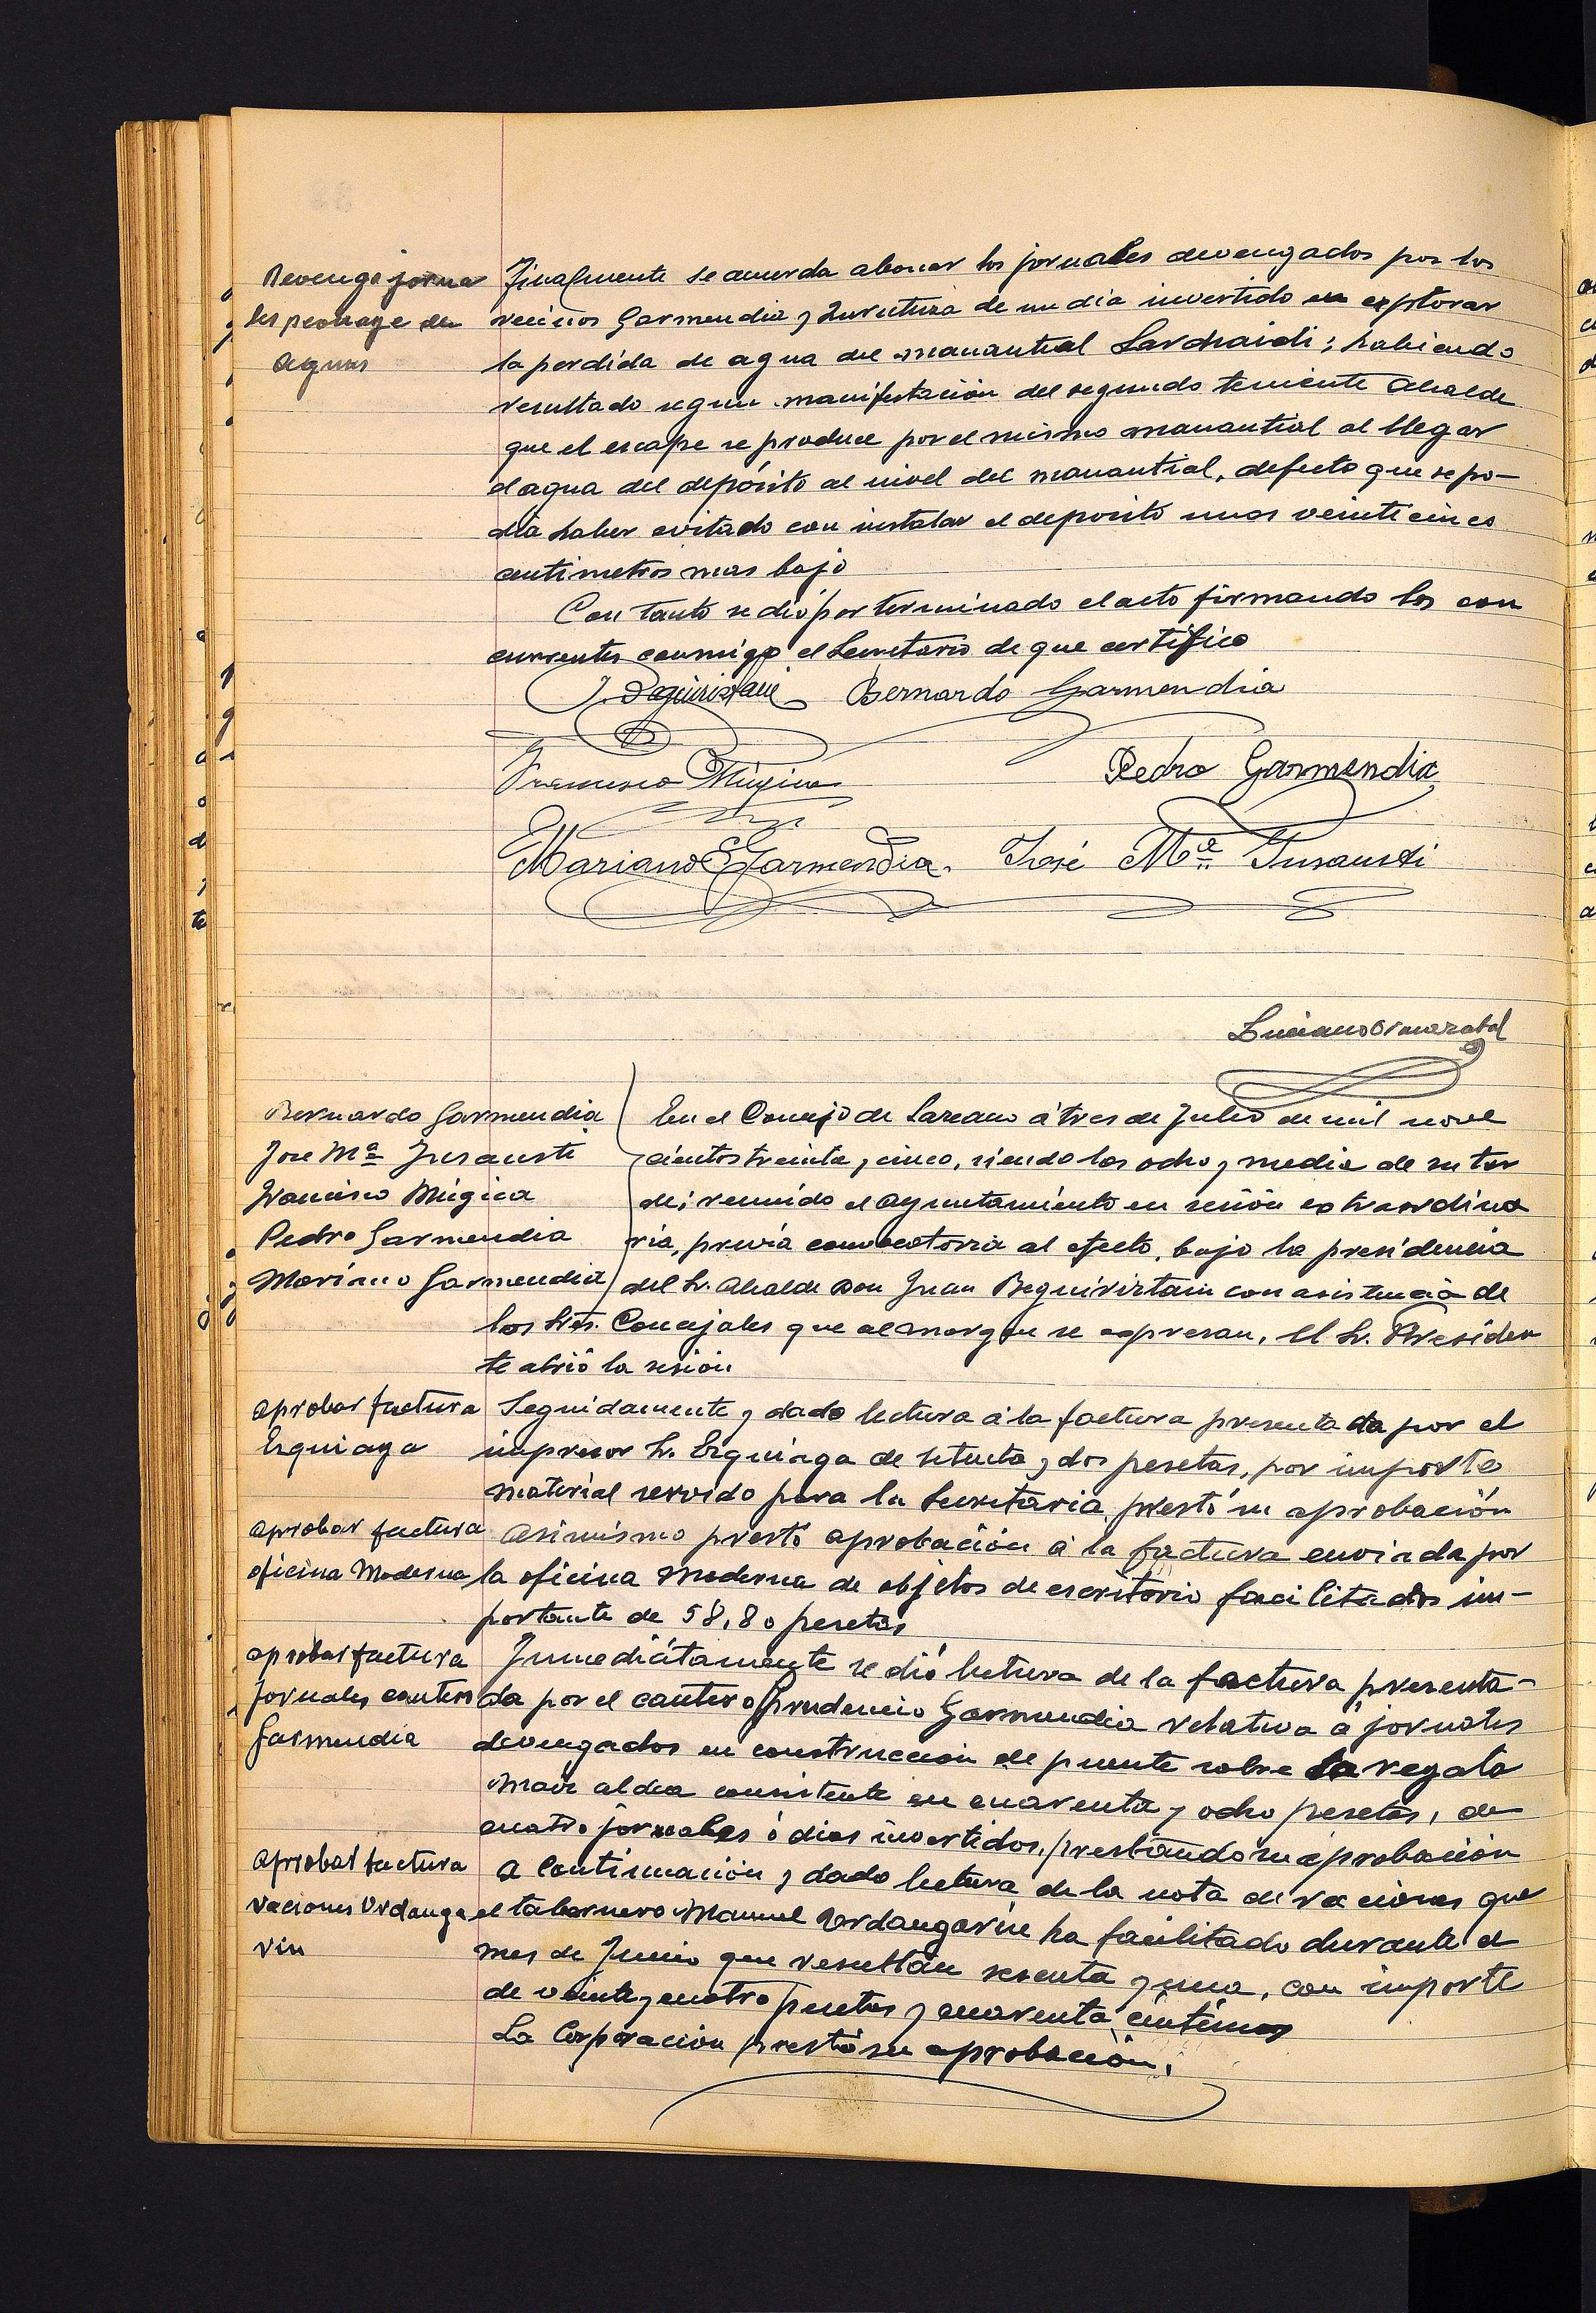 Devenga jorna
les peonage de
aguas
Finalmente se acuerda abonar los jornales devengados por los
vecinos Garmendia y Zurutuza de un dia invertido en explorar
la perdida de agua del manantial Lardiaidi; habiendo
resultado segun manifestación del segundo teniente Alcalde
que el escape se produce por el mismo manantial al llegar
el agua del depósito al nivel del manantial, defecto que se po-
dia haber evitado con instalar el deposito unos veinticinco
centimetros mas bajo
Con tanto se dió por terminado el acto firmando los con
currentes conmigo el Secretario de que certifico
J. Beguiristain Bernardo Garmendia
Francisco Múgica
Pedro Garmendia
Mariano Garmendia. José Mª Insausti
Luciano
Bernardo Garmendia
Jose Mª Insausti
Francisco Múgica
Pedro Garmendia
Mariano Garmendia
En el Concejo de Lazcano á tres de Julio de mil nove
cientos treinta y cinco, siendo las ocho y media de su tar
de; reunido el ayuntamiento en sesión extraordina
ria, previa convocatoria al efecto, bajo la presidencia
del Sr. Alcalde Don Juan Beguiristain con asistencia de
los Sres. Concejales que al margen se expresan. El Sr. Presiden
te abrió la sesión
aprobar factura
Ezquiaga
Seguidamente y dado lectura á la factura presentada por el
impresor Sr. Ezquiaga de setenta y dos pesetas, por importe
material servido para la Secretaria, prestó su aprobación
aprobar factura
oficina Moderna
Asimismo prestó aprobación á la factura enviada por
la oficina Moderna de objetos de escritorio facilitados im-
portante de 58,80 pesetas
aprobar factura
Jornales cantero
Garmendia
Inmediátamente se dió lectura de la factura presenta-
da por el cantero Prudencio Garmendia relativa á jornales
devengados en construcción de puente sobre la regata
aldea consistente en cuarenta y ocho pesetas, de
cuatro jornales ó dias invertidos, prestando su aprobación
aprobar factura
raciones Urdanga
rin
A continuación y dado lectura de la nota de raciones que
el tabernero Manuel Urdangarin ha facilitado durante el
mes de Junio que resultan sesenta y una, con importe
de veinte y cuatro pesetas y cuarenta céntimos
La Corporación prestó su aprobación.